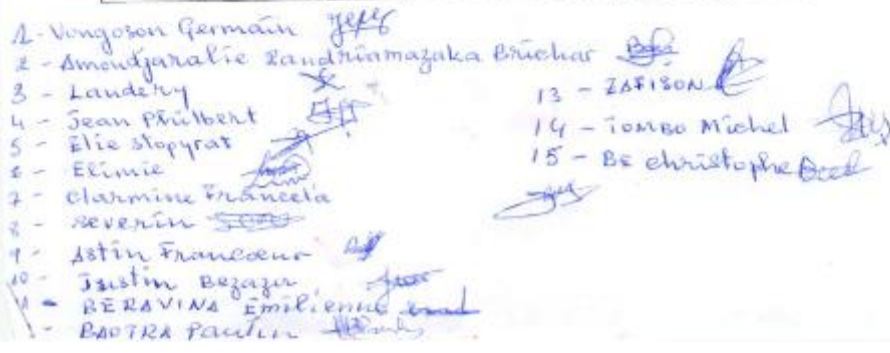 1 - Vongoson Germain
2 - Amondjaralie Randriamazaka Brichar
3 - Landery
4 - Jean Philbert
5 - Elie Stopyrat
6 - Elimie
7 - Clarmine Francela
8 - Severin
9 - Astin Francoeur
10 - Justin Bezazu
11 - BERAVINA Emilienne
- BAOTRA Paulin
13 - ZAFISON
14 - TOMBO Michel
15 - BE christophe